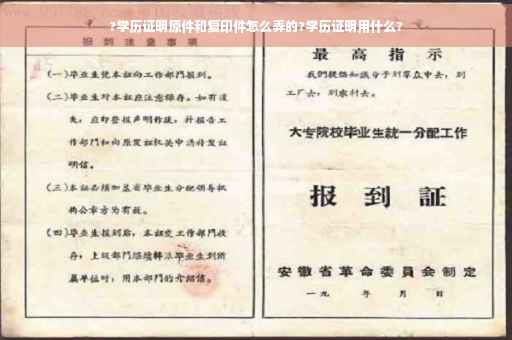 ?学历证明原件和复印件怎么弄的?学历证明用什么?
报到注意事项
(一)毕业生凭本证向工作部门报到。
(二)毕业生对本证应注意保存。如有遗
失，应即登报声明作废，并报告工
作部门和向原发证机关申请补发证
明信。
(三)本证必须加盖省毕业生分配领导机
构公章方为有效。
(四)毕业生报到后，本证交工作部门收
存；上级部门继续转派毕业生到所
属单位时，用本部门的介绍信。
最高指示
我们提倡知识分子到群众中去，到
工厂去，到农村去。
大专院校毕业生统一分配工作
报到証
安徽省革命委員会制定
一九 年 月 日